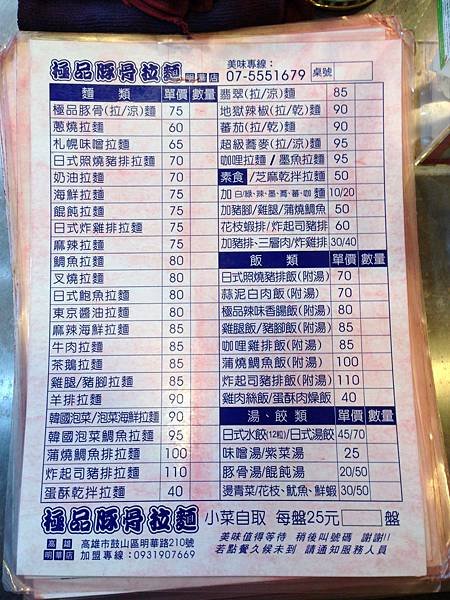 極品豚骨拉麵 明華店
美味專線：
07-5551679 桌號
麵 類 單價 數量
極品豚骨(拉/涼)麵 75
蔥燒拉麵 60
札幌味噌拉麵 65
日式照燒豬排拉麵 70
奶油拉麵 75
海鮮拉麵 75
餛飩拉麵 75
日式炸雞排拉麵 75
麻辣拉麵 75
鯛魚拉麵 80
叉燒拉麵 80
日式鮑魚拉麵 80
東京醬油拉麵 80
麻辣海鮮拉麵 85
牛肉拉麵 85
茶鵝拉麵 85
雞腿/豬腳拉麵 85
羊排拉麵 90
韓國泡菜/泡菜海鮮拉麵 90
韓國泡菜鯛魚拉麵 95
蒲燒鯛魚排拉麵 100
炸起司豬排拉麵 110
蛋酥乾拌拉麵 40
翡翠(拉/涼)麵 85
地獄辣椒(拉/乾)麵 90
蕃茄(拉/乾)麵 90
超級蕎麥(拉/涼)麵 95
咖哩拉麵 / 墨魚拉麵 95
素食/芝麻乾拌拉麵 50
加 白/綠、辣、墨、蕎、蕃、咖 麵 10/20
加豬腳/雞腿/蒲燒鯛魚 50
花枝蝦排/炸起司豬排 60
加豬排、三層肉/炸雞排 30/40
飯 類 單價 數量
日式照燒豬排飯(附湯) 70
蒜泥白肉飯(附湯) 70
極品辣味香腸飯(附湯) 80
雞腿飯/豬腳飯(附湯) 80
咖哩雞排飯(附湯) 85
蒲燒鯛魚飯(附湯) 100
炸起司豬排飯(附湯) 110
雞肉絲飯/蛋酥肉燥飯 40
湯、餃類 單價 數量
日式水餃(12粒)/日式湯餃 45/70
味噌湯/紫菜湯 25
豚骨湯/餛飩湯 20/50
燙青菜/花枝、魷魚、鮮蝦 30/50
極品豚骨拉麵 小菜自取 每盤25元 盤
高雄 明華店 高雄市鼓山區明華路210號
加盟專線：0931907669
美味值得等待 稍後叫號碼 謝謝!!
若點餐久候未到 請通知服務人員